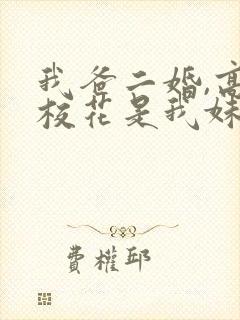 我爸二婚,高
校花是我妹
費權邱